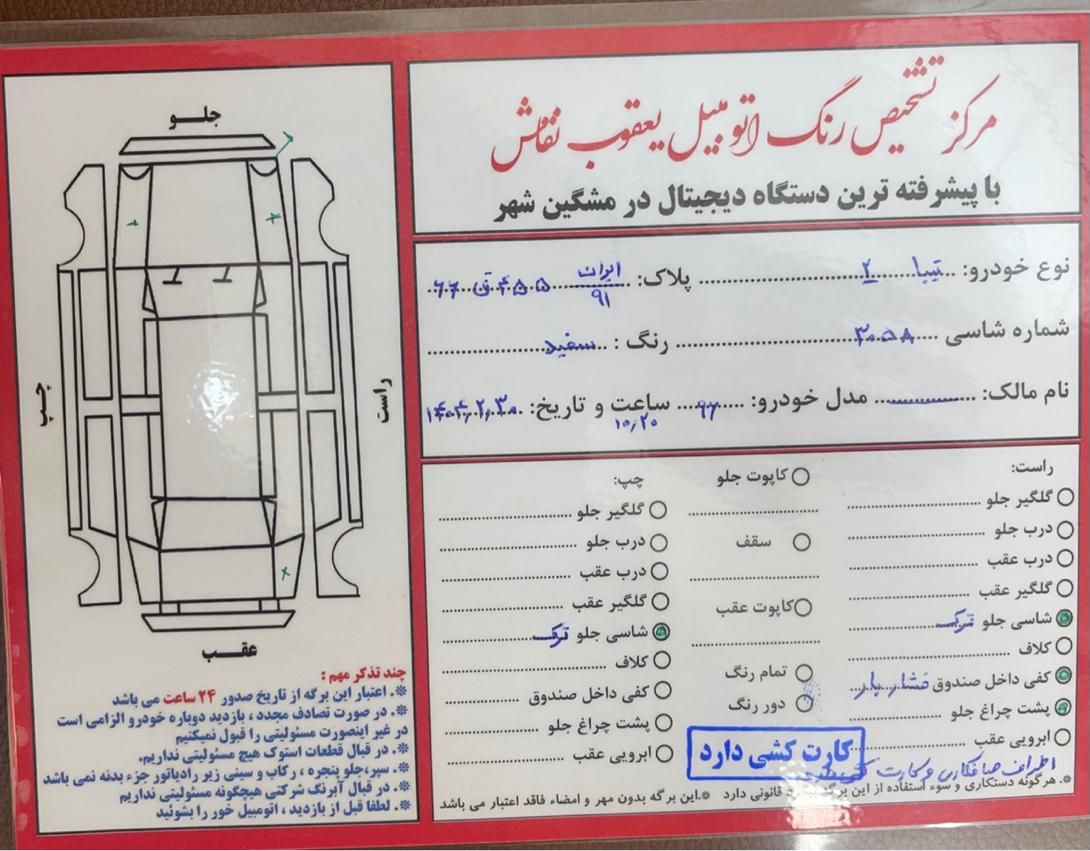 مرکز تشخیص رنگ اتومبیل یعقوب نقاش
با پیشرفته ترین دستگاه دیجیتال در مشگین شهر
نوع خودرو: تیبا ۲ پلاک: ایران ۹۱ ۴۵۵ ق ۶۶
شماره شاسی ۳۰۵۸ رنگ: سفید
نام مالک: مدل خودرو: ۹۷ ساعت و تاریخ: ۱۴۰۴,۲,۳۰
۱۰,۲۰
راست:
گلگیر جلو
درب جلو
درب عقب
گلگیر عقب
شاسی جلو ترک
کلاف
کفی داخل صندوق فشار بار
پشت چراغ جلو
ابرویی عقب
کاپوت جلو
سقف
کاپوت عقب
تمام رنگ
دور رنگ
چپ:
گلگیر جلو
درب جلو
درب عقب
گلگیر عقب
شاسی جلو ترک
کلاف
کفی داخل صندوق
پشت چراغ جلو
ابرویی عقب
کارت کشی دارد
اطراف صافکاری و کارت
※.هرگونه دستکاری و سوء استفاده از این برگه قانونی دارد ※.این برگه بدون مهر و امضاء فاقد اعتبار می باشد
جلـو
چپ
راست
عقـب
چند تذکر مهم :
※. اعتبار این برگه از تاریخ صدور ۲۴ ساعت می باشد
※. در صورت تصادف مجدد ، بازدید دوباره خودرو الزامی است
در غیر اینصورت مسئولیتی را قبول نمیکنیم
※. در قبال قطعات استوک هیچ مسئولیتی نداریم.
※. سپر،جلو پنجره ، رکاب و سینی زیر رادیاتور جزء بدنه نمی باشد
※. در قبال آبرنگ شرکتی هیچگونه مسئولیتی نداریم
※. لطفا قبل از بازدید ، اتومبیل خور را بشوئید